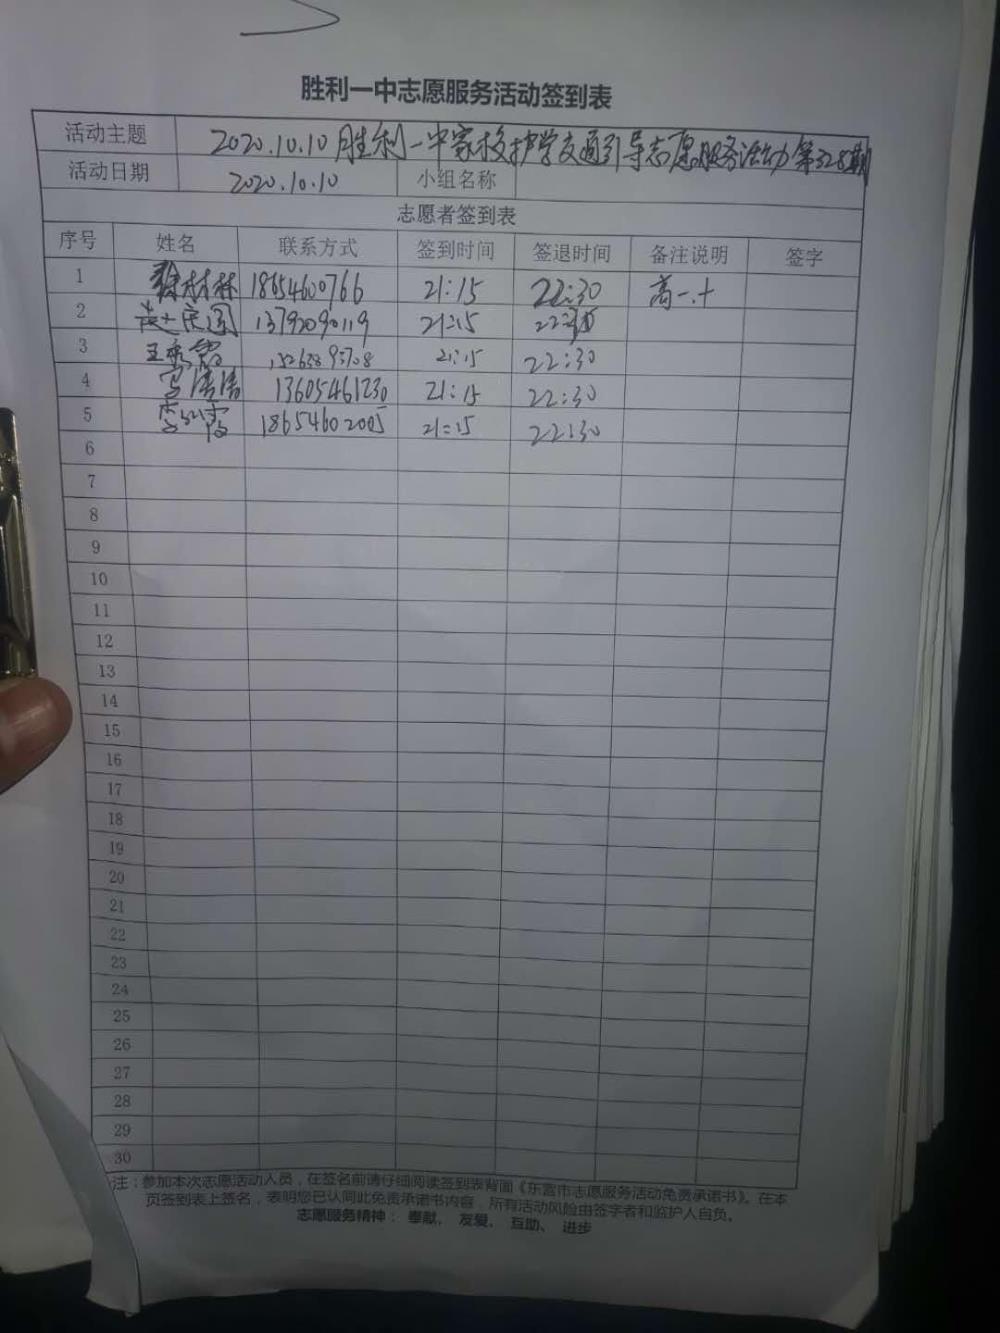 胜利一中志愿服务活动签到表
活动主题 2020.10.10胜利一中家校护学交通引导志愿服务活动第328期
活动日期 2020.10.10 小组名称
志愿者签到表
序号 姓名 联系方式 签到时间 签退时间 备注说明 签字
1 林 18654600766 21:15 22:30 高一.十
2 13792090119 21:15
3 王秀霞 21:15 22:30
4 宫清清 13605461230 21:15 22:30
5 李红霞 18654602005 21:15 22:30
6
7
8
9
10
11
12
13
14
15
16
17
18
19
20
21
22
23
24
25
26
27
28
29
30
注：参加本次志愿活动人员，在签名前请仔细阅读签到表背面《东营市志愿服务活动免责承诺书》。在本
页签到表上签名，表明您已认同此免责承诺书内容，所有活动风险由签字者和监护人自负。
志愿服务精神： 奉献、 友爱、 互助、 进步